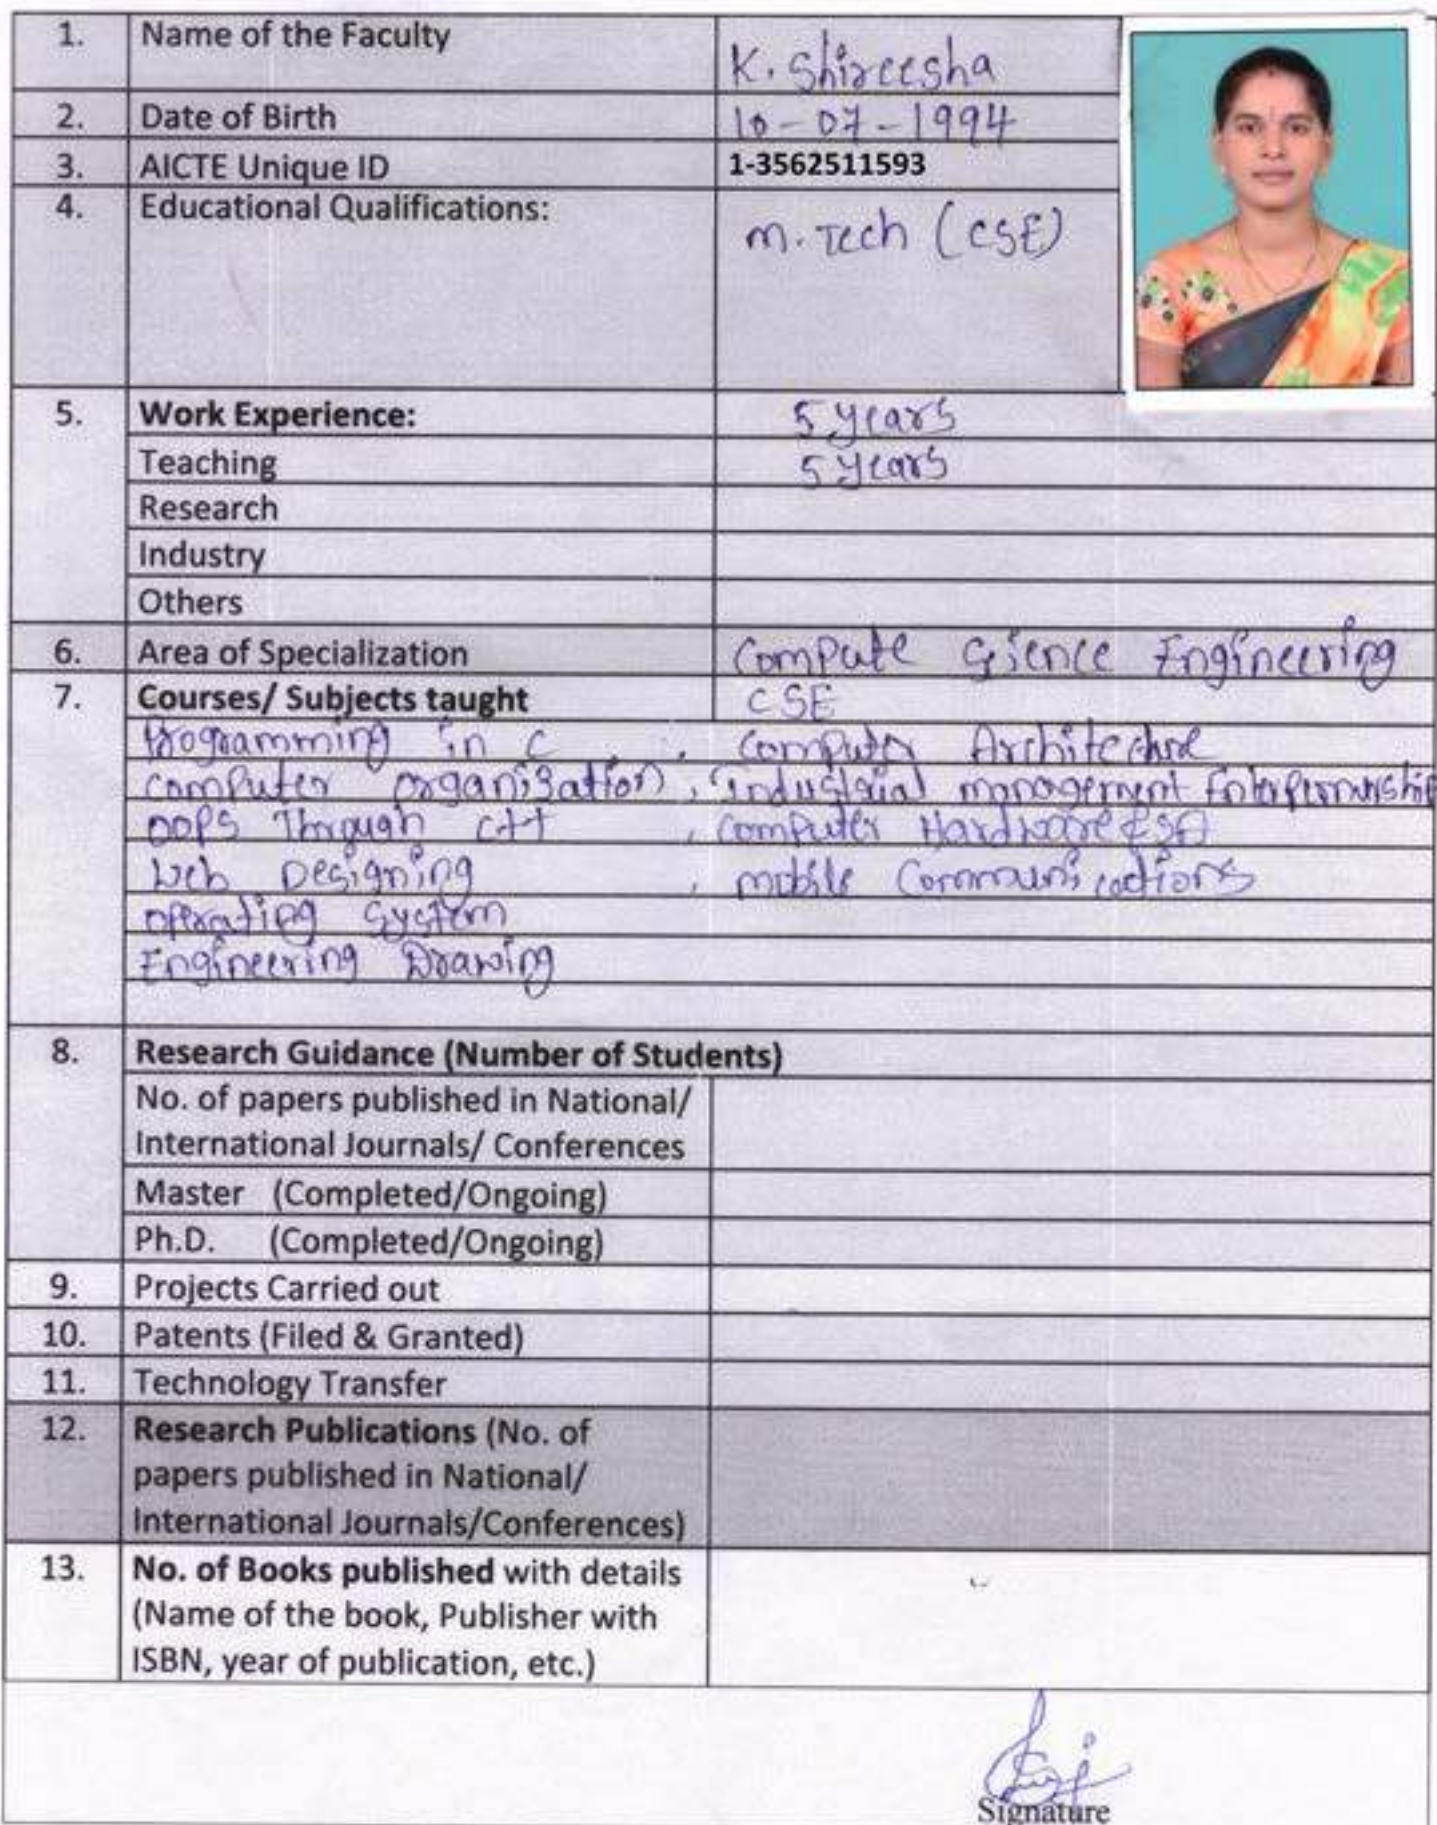 1. Name of the Faculty K. Shireesha
2. Date of Birth 10-07-1994
3. AICTE Unique ID 1-3562511593
4. Educational Qualifications: M.Tech (CSE)
5. Work Experience: 5 years
Teaching 5 years
Research
Industry
Others
6. Area of Specialization Compute Science Engineering
7. Courses/ Subjects taught CSE
Programming in C , Computer Architecture
Computer organisation , Industrial management
OOPS Through C++ , Computer Hardware
Web Designing , mobile Communications
operating System
Engineering Drawing
8. Research Guidance (Number of Students)
No. of papers published in National/
International Journals/ Conferences
Master (Completed/Ongoing)
Ph.D. (Completed/Ongoing)
9. Projects Carried out
10. Patents (Filed & Granted)
11. Technology Transfer
12. Research Publications (No. of
papers published in National/
International Journals/Conferences)
13. No. of Books published with details
(Name of the book, Publisher with
ISBN, year of publication, etc.)
Signature